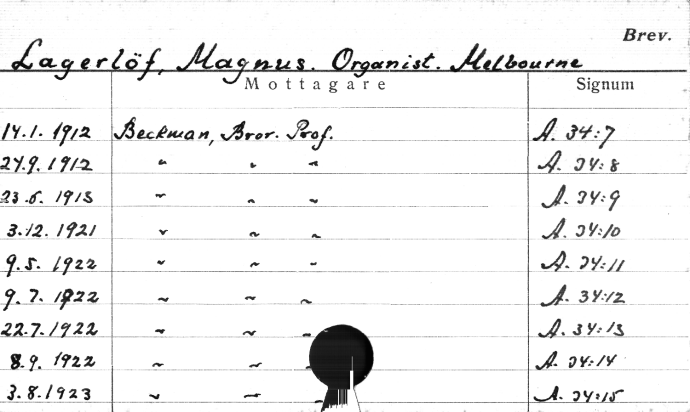 Brev.
Lagerlöf, Magnus. Organist. Melbourne
Mottagare Signum
14.1. 1912 Beckman, Bror. Prof. A. 34:7
24.9. 1912 " " " A. 34:8
23.6. 1913 " " " A. 34:9
3.12. 1921 " " " A. 34:10
9.5. 1922 " " " A. 34:11
9.7. 1922 " " " A. 34:12
22.7. 1922 " " " A. 34:13
8.9. 1922 " " " A. 34:14
3.8. 1923 " " " A. 34:15